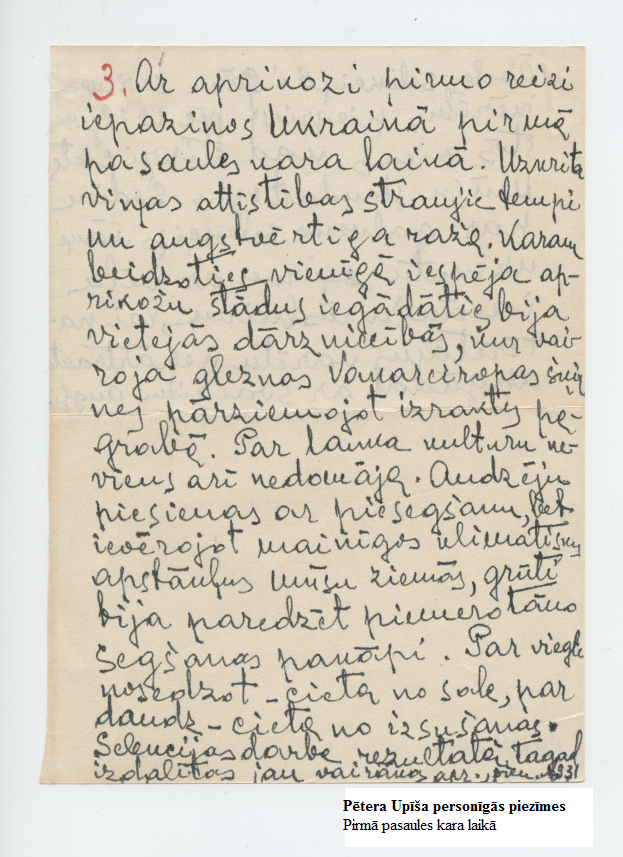 3. Ar aprikozi pirmo reizi
iepazinos Ukrainā pirmā
pasaules kara laikā. Uzkrita
viņas attīstības straujie tempi
un augstvērtīga raža. Karam
beidzoties vienīgā iespēja ap-
rikožu stādus iegādāties bija
vietejās dārzniecībās, kur vai-
roja gleznas Vakareiropas šķir
nes pārziemojot izraktus pa-
grabā. Par lauka kulturu ne-
viens arī nedomāja. Audzēju
piesienas ar piesegšanu, bet
ievērojot mainīgos klimatiskus
apstākļus mūsu ziemās, grūti
bija paredzēt piemērotāko
segšanas pakāpi. Par viegli
nosedzot – cieta no sala, par
daudz – cieta no izsušanas.
Selekcijas darba rezultatā, tagad
izdalītas jau vairākas apr.,
Pētera Upīša personīgās piezīmes
Pirmā pasaules kara laikā